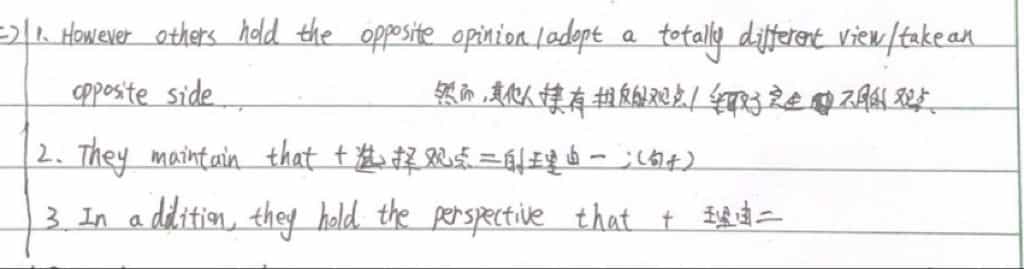 二) 1. However others hold the opposite opinion/adopt a totally different view/take an
opposite side. 然而,其他人持有相反的观点/采取了完全不同的观点.
2. They maintain that + 选择观点二的理由一;(句子)
3. In addition, they hold the perspective that + 理由二